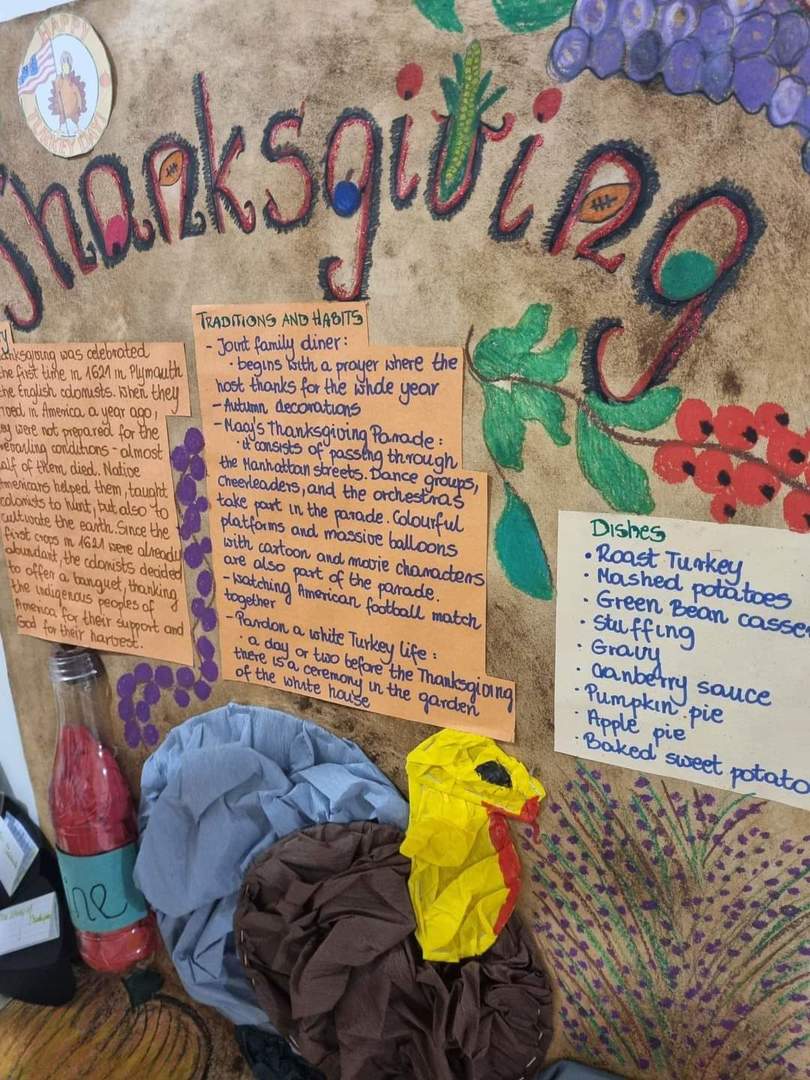 HAPPY
TURKEY DAY!
Thanksgiving
was celebrated
the first time in 1621 in Plymouth
the English colonists. When they
in America a year ago,
were not prepared for the
prevailing conditions - almost
half of them died. Native
Americans helped them, taught
colonists to hunt, but also to
cultivate the earth. Since the
first crops in 1621 were already
abundant, the colonists decided
to offer a banquet, thanking
the indigenous peoples of
America for their support and
God for their harvest.
TRADITIONS AND HABITS
- Joint family diner:
· begins with a prayer where the
host thanks for the whole year
- Autumn decorations
- Macy's Thanksgiving Parade:
· it consists of passing through
the Manhattan streets. Dance groups,
cheerleaders, and the orchestras
take part in the parade. Colourful
platforms and massive balloons
with cartoon and movie characters
are also part of the parade.
- watching American football match
together
- Pardon a white Turkey life:
· a day or two before the Thanksgiving
there is a ceremony in the garden
of the white house
Dishes
• Roast Turkey
· Mashed potatoes
· Green Bean casse
· stuffing
· Gravy
· Cranberry sauce
· Pumpkin pie
· Apple pie
· Baked sweet potato
ine